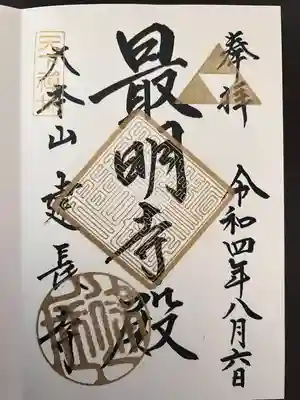 奉拝
令和四年八月六日
最明寺殿
天下禅林
大本山建長寺